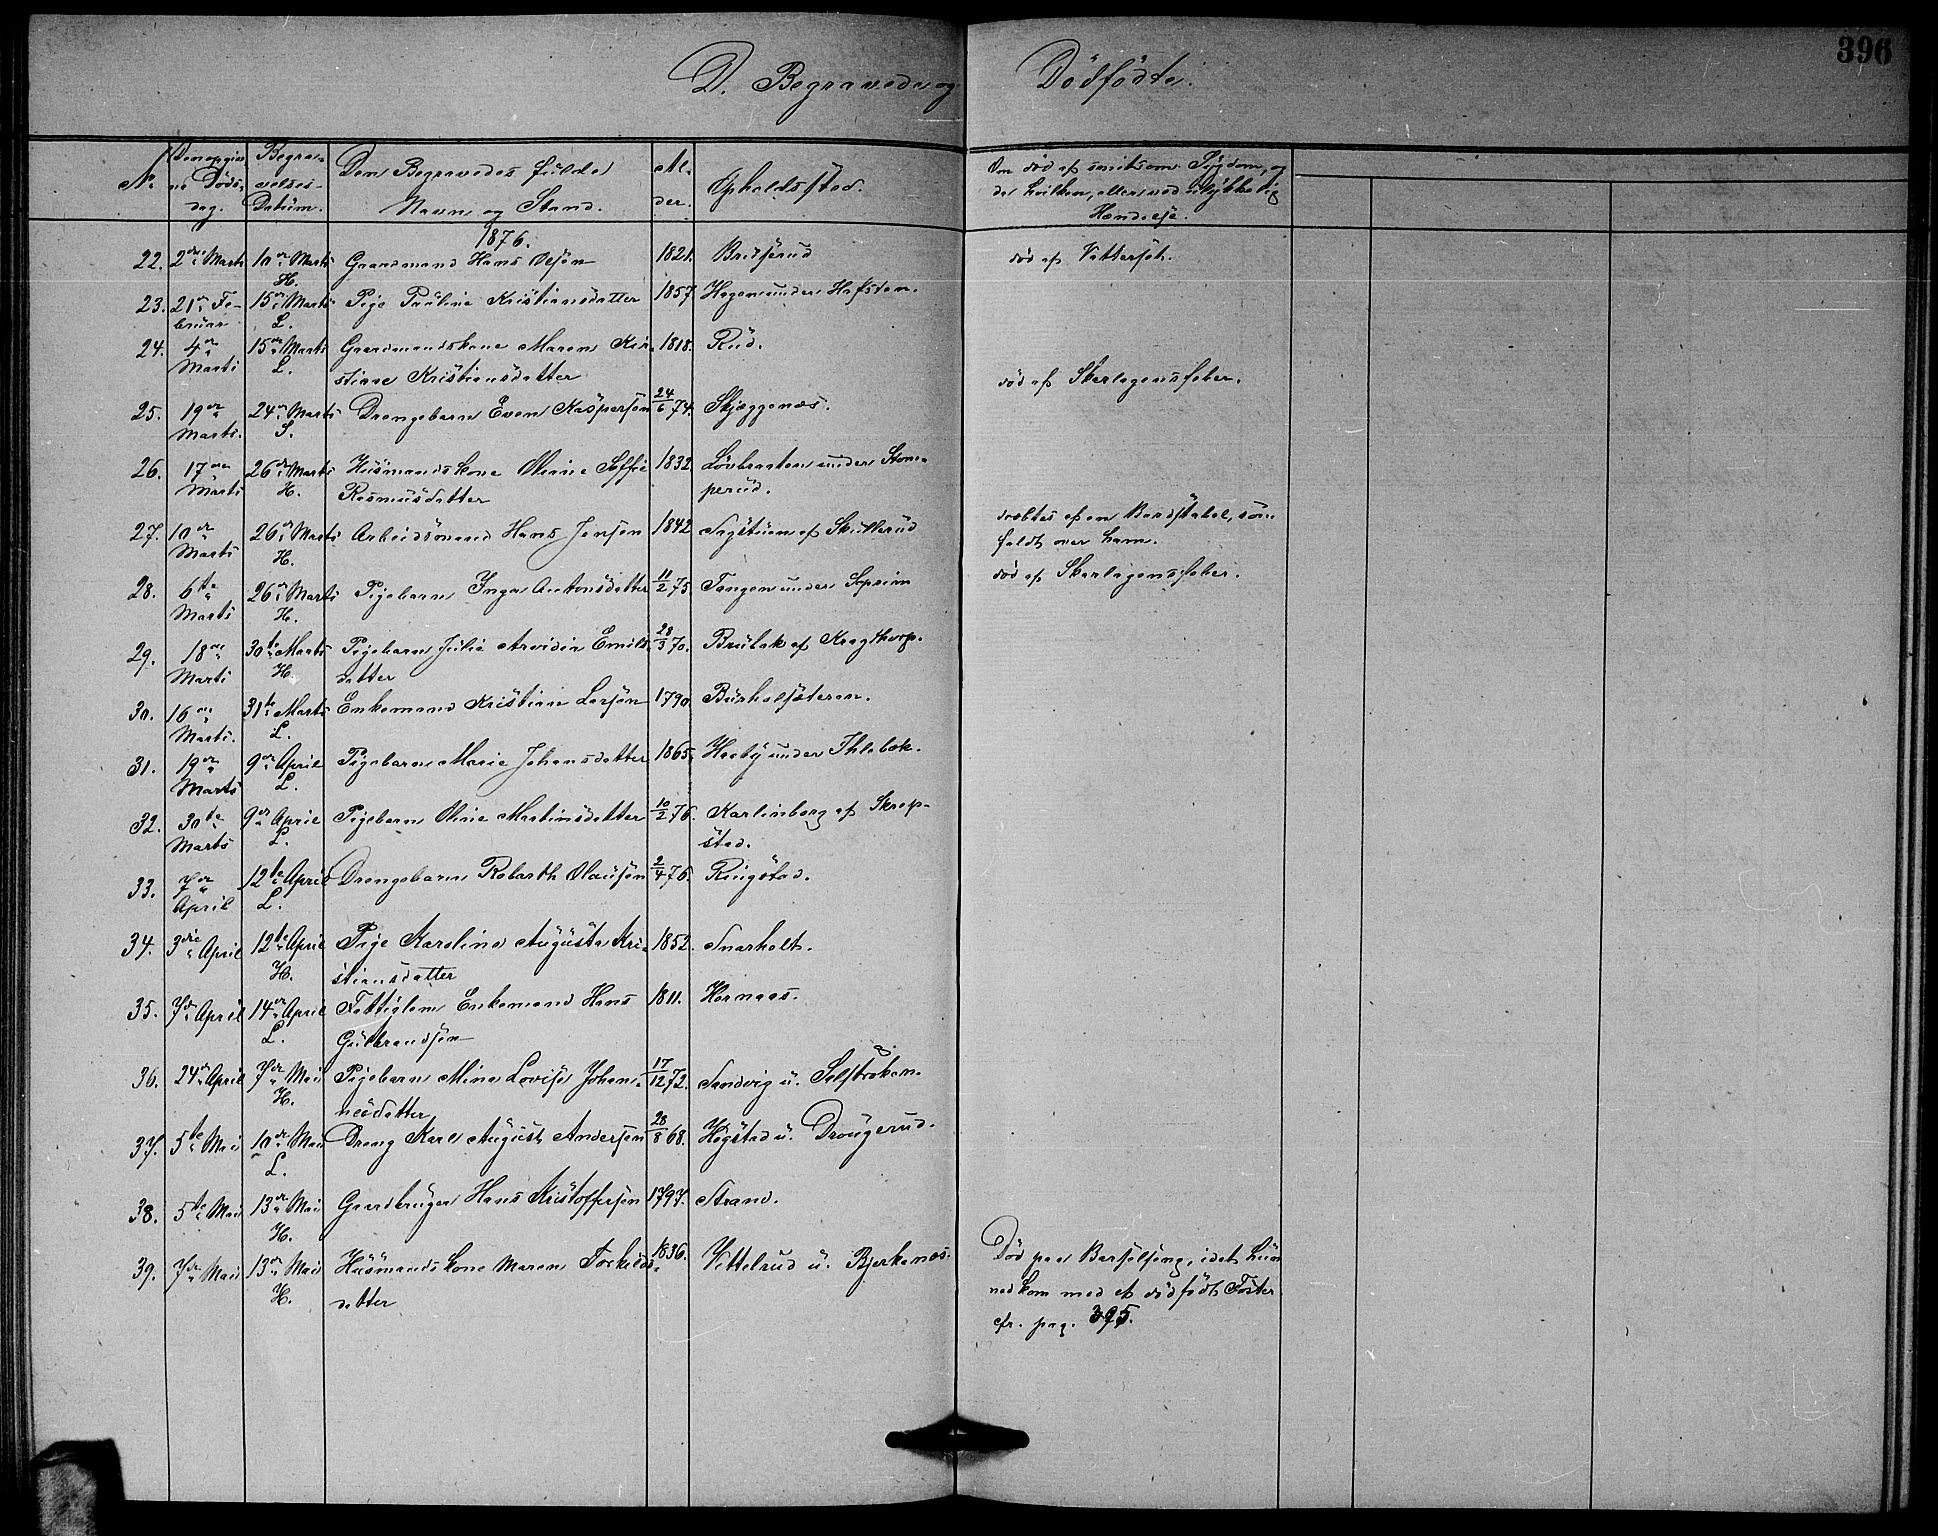 396
D. Begravede og Dödfödte.
No. Den opgivne Dödsdag. Begravelses-Datum. Den Begravedes fulde Navn og Stand. Alder. Opholdssted. Om död af smitsom Sygdom, og da hvilken, eller ved ulykkelig Hændelse.
1876.
22. 2den Marts 10de Marts H. Gaardmand Hans Olsön 1821. död af Vattersot.
23. 21de Februar 15de Marts L. Pige Pauline Kristiansdatter 1857. Hagen under Hafsten.
24. 4de Marts 15de Marts L. Gaardmandskone Maren Kir-
stiane Kristiansdatter 1818. Rud.
25. 19de Marts. 24de Marts S. Drengebarn Even Kaspersen 24/6 74. Skjæggenæs. död af Skarlagensfeber.
26. 17de Marts 26de Marts H. Husmandskone Oline Soffie
Rasmusdatter 1832. Lövbraaten under Stom-
perud.
27. 10de Marts 26de Marts H. Arbeidsmand Hans Jensen 1842 Sagstuen af Skullerud dræbtes af en Bordstabel, som
faldt over ham.
28. 6te Marts 26de Marts H. Pigebarn Inga Antonsdatter 11/2 75. Tangen under död af Skarlagensfeber.
29. 18de Marts 30te Marts H. Pigebarn Julie Emils-
datter 28/3 70. Brubak af Kragthorp.
30. 16de Marts. 31te Marts L. Enkemand Kristian Larsön 1790.
31. 19de Marts 9de April L. Pigebarn Marie Johansdatter 1865. Haaby under Ihlebæk.
32. 30te Marts 9de April L. Pigebarn Oline Martinsdatter 10/2 76. Karlinborg af Skrep-
stad.
33. 7de April 12te April L. Drengebarn Robarth Olausön 2/4 76. Ringstad.
34. 3die April 12te April H. Pige Karoline Augusta Kri-
stiansdatter 1852. Snarholt.
35. 7de April 14de April L. Fattiglem Enkemand Hans
Gulbrandsön 1811. Hornaas.
36. 24de April 7de Mai H. Pigebarn Mina Lovise Johan-
nesdatter 17/12 72. Sandvig u.
37. 5te Mai 10de Mai L. Dreng Karl August Andersen 28/8 68. Högstad u. Drougerud.
38. 5te Mai 13de Mai H. Gaardbruger Hans Kristoffersön 1797. Strand.
39. 7de Mai 13de Mai H. Husmandskone Maren Torkilds-
datter 1836. Vettelrud u. Bjerkenæs. Död paa Barselseng, idet hun
nedkom med et dödfödt Foster
cfr. pag. 395.